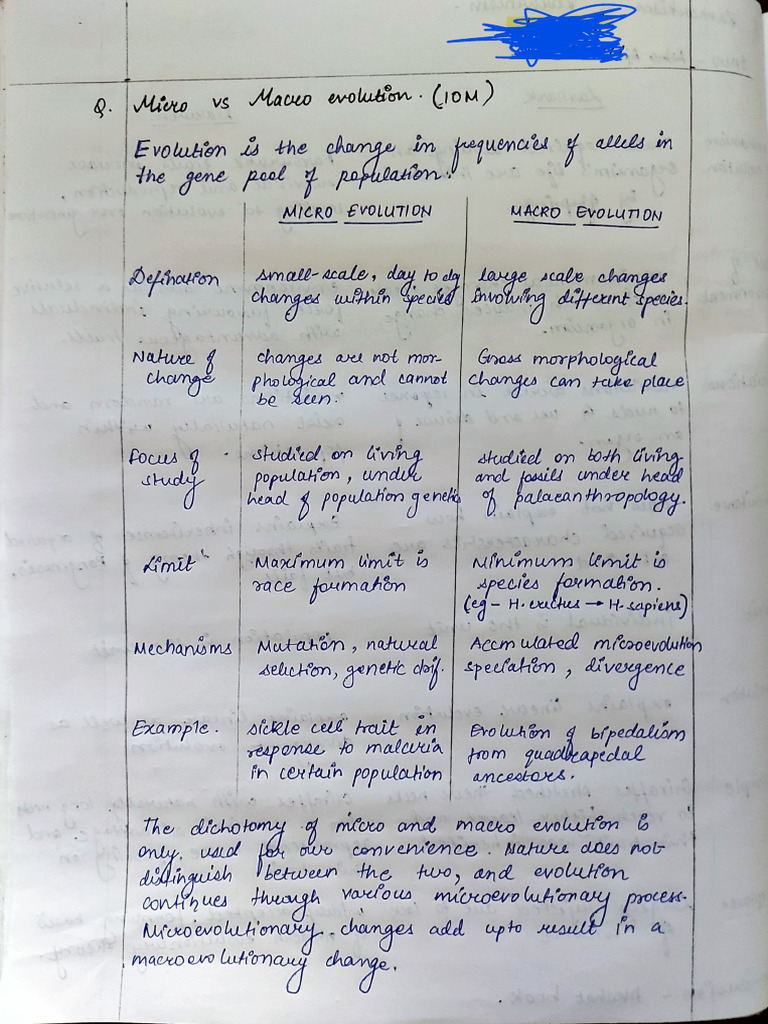 Q. Micro vs Macro evolution. (10M)
Evolution is the change in frequencies of allels in
the gene pool of population.
MICRO EVOLUTION MACRO EVOLUTION
Defination small-scale, day to day large scale changes
changes within species involving different species.
Nature of changes are not mor- Gross morphological
change phological and cannot changes can take place
be seen.
Focus of studied on living studied on both living
study population, under and fossils under head
head of population genetics of palaeanthropology.
Limit Maximum limit is Minimum limit is
race formation species formation.
(eg- H. erectus → H. sapiens)
Mechanisms Mutation, natural Accmulated microevolution
selection, genetic drif. speciation, divergence
Example. sickle cell trait in Evolution of bipedalism
response to malaria from quadrapedal
in certain population ancestors.
The dichotomy of micro and macro evolution is
only used for our convenience. Nature does not
distinguish between the two, and evolution
continues through various microevolutionary process.
Microevolutionary changes add upto result in a
macroevolutionary change.